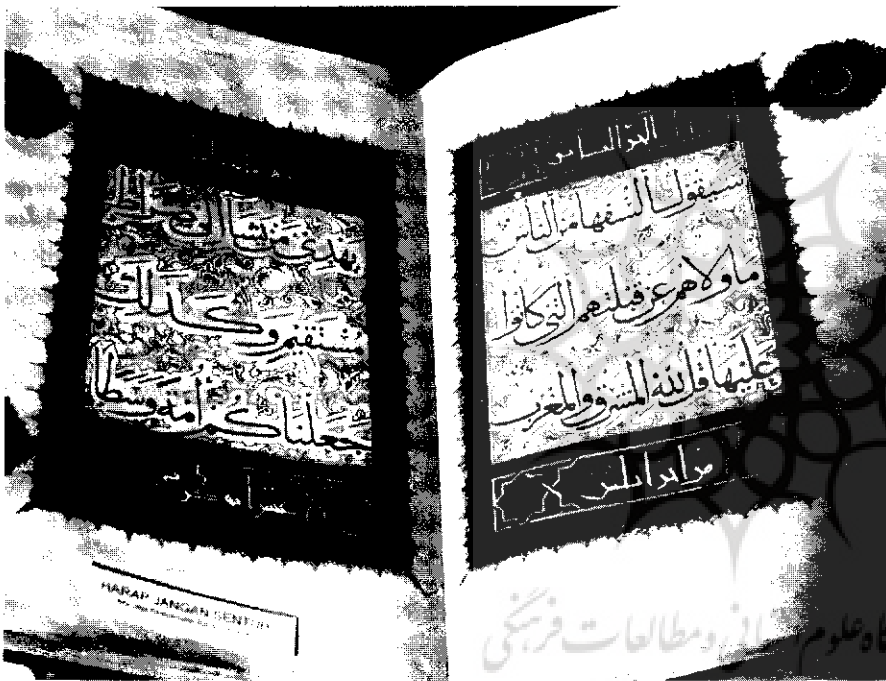 سيقول السفها من الناس
ما ولاهم عن قبلتهم التي كانوا
عليها قل لله المشرق والمغرب
يهدي من يشا الى صراط
مستقيم وكذلك
جعلناكم أمة وسطا
HARAP JANGAN SENTUH
علوم انسانی و مطالعات فرهنگی